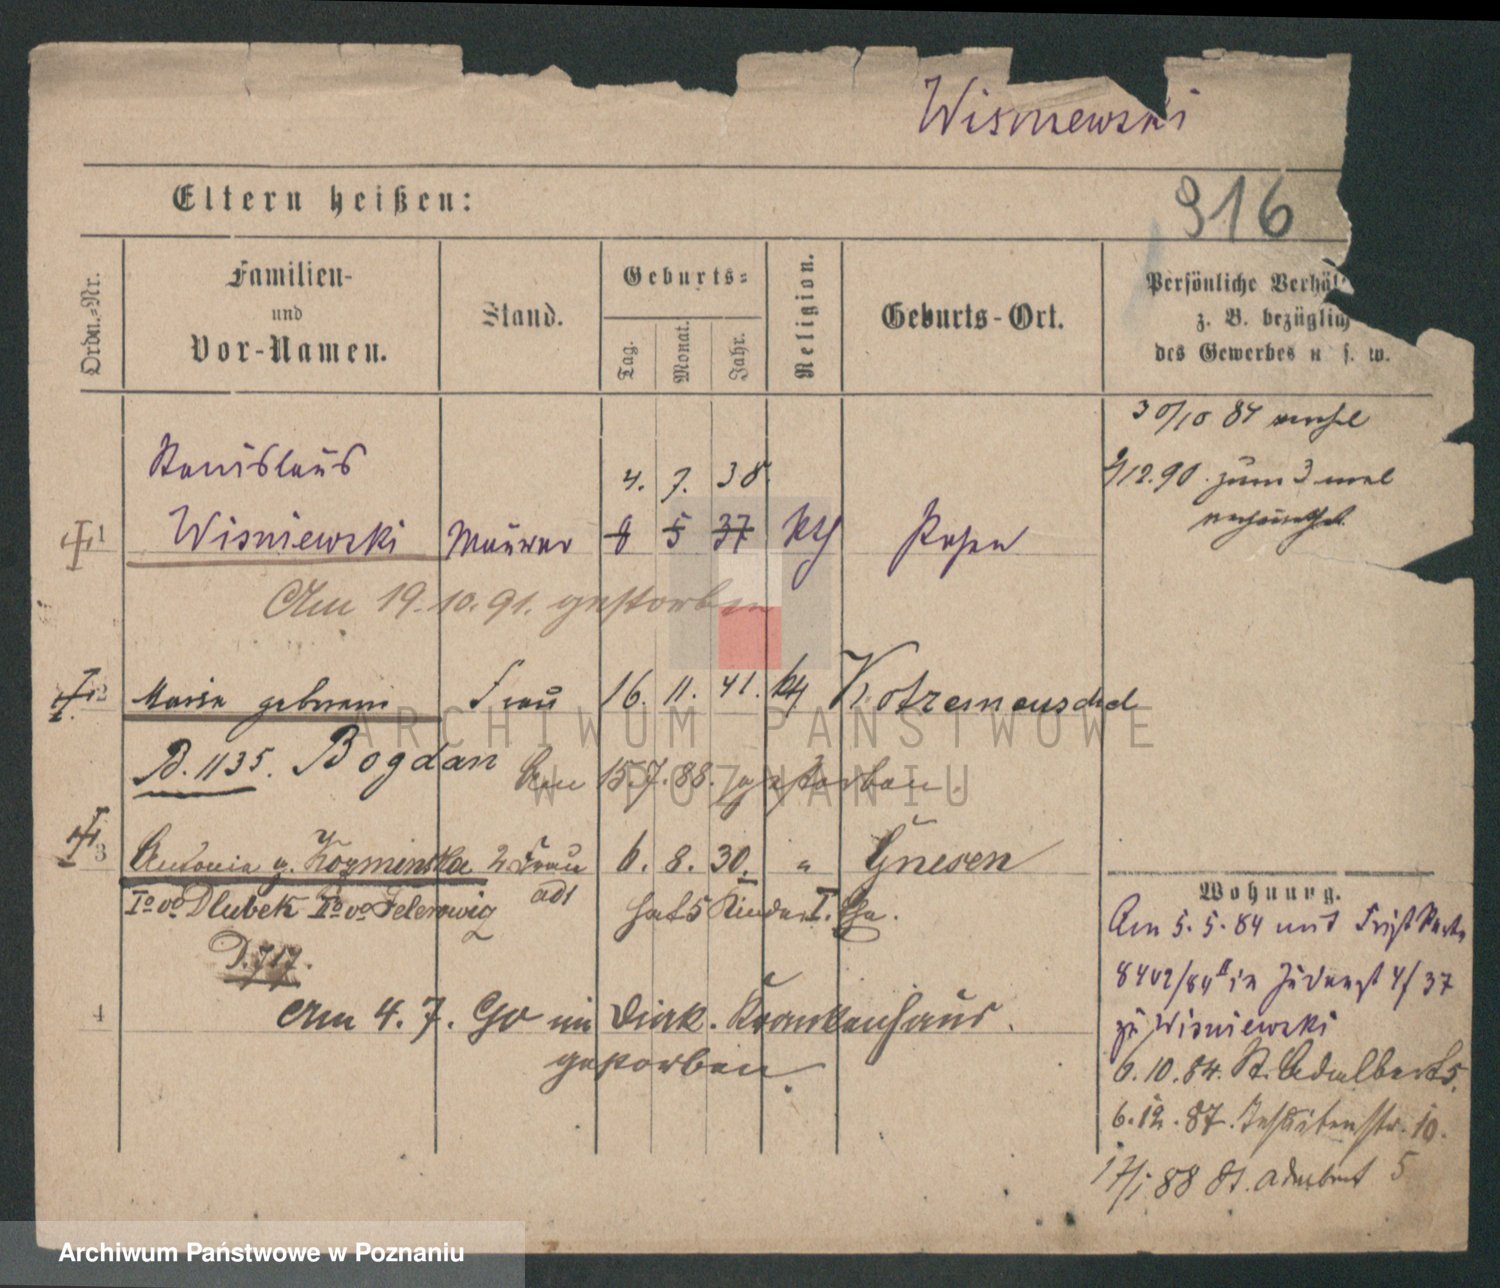 Wisniewski
Eltern heißen:
916
Ordn.-Nr.
Familien-
und
Vor-Namen.
Stand.
Geburts-
Tag.
Monat.
Jahr.
Religion.
Geburts-Ort.
Persönliche Verhäl
z. B. bezüglich
des Gewerbes u. s. w.
30/10 84
Stanislaus
4. 7. 38.
9/12.90. zum 3 mal
1 Wisniewski Maurer 8 5 37 kth Posen
Am 19.10.91. gestorben
2 Maria geborene Frau 16. 11. 41. kth
B. 1135. Bogdan
Am 15.7.88. gestorben.
3 Antonia g. Kozminska 2 Frau 6. 8. 30. " Gnesen
Io vo Dlubek IIo vo
hat 5 Kinder I. Ehe.
D. 717.
4
Am 4. 7. 90 im Diak. Krankenhaus.
gestorben
Wohnung.
Am 5. 5. 84 mit
in 4/37
zu Wisniewski
6. 10. 84. St. Adalbert 5.
6. 12. 87. Jesuitenstr. 10.
17/1 88 St. Adalbert 5
ARCHIWUM PAŃSTWOWE
W POZNANIU
Archiwum Państwowe w Poznaniu